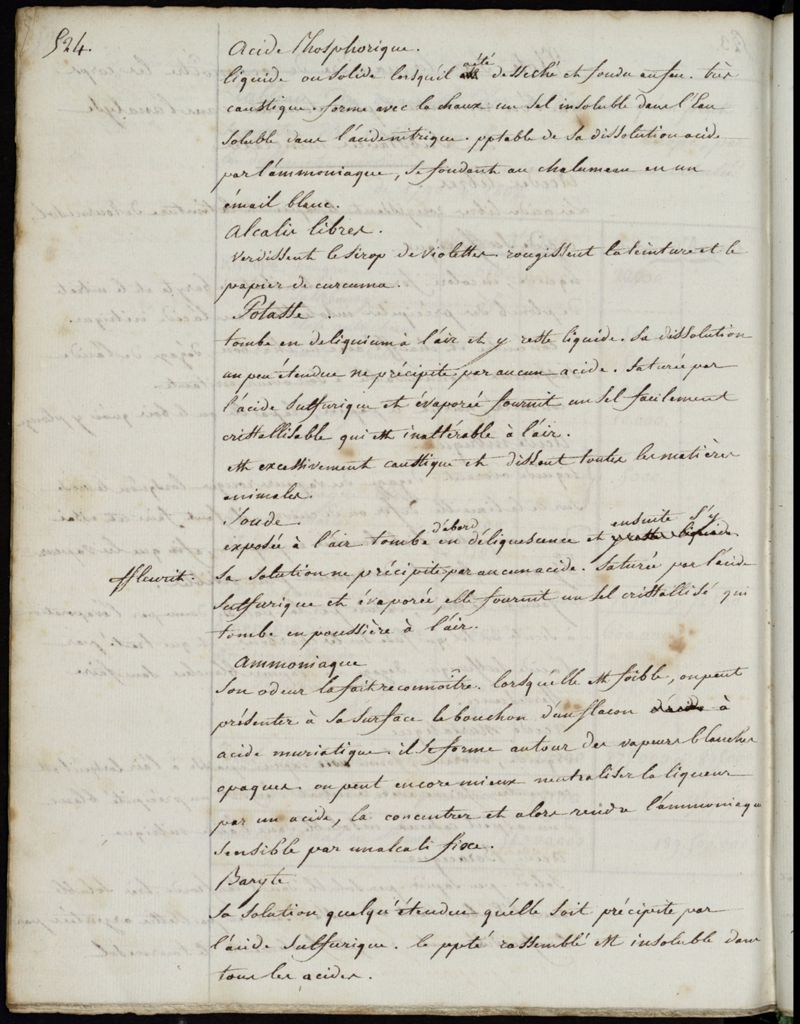 524.
Acide Phosphorique.
liquide ou solide lorsqu'il a été desseché et fondu au feu. très
caustique. forme avec la chaux un sel insoluble dans l'Eau
soluble dans l'acide nitrique. pptable de sa dissolution acide
par l'ammoniaque, se fondant au chalumeau en un
émail blanc.
Alcalis libres.
verdissent le sirop de violettes. rougissent la teinture et le
papier de curcuma.
Potasse.
tombe en deliquium à l'air et y reste liquide. Sa dissolution
un peu étendue ne précipite par aucun acide. Saturée par
l'acide Sulfurique et évaporée fournit un Sel facilement
cristallisable qui est inaltérable à l'air.
est excessivement caustique et dissout toutes les matières
animales.
Soude.
exposée à l'air tombe d'abord en déliquescence et ensuite s'y y reste liquide
effleurit. Sa Solution ne précipite par aucun acide. Saturée par l'acide
Sulfurique et évaporée, elle fournit un Sel cristallisé qui
tombe en poussière à l'air.
Ammoniaque
Son odeur la fait reconnoître. lorsqu'elle est foible, on peut
présenter à Sa Surface le bouchon d'un flacon d'acide à
acide muriatique. il Se forme autour des vapeurs blanches
opaques. on peut encore mieux neutraliser la liqueur
par un acide, la concentrer et alors rendre l'ammoniaque
Sensible par un alcali fixe.
Baryte
Sa Solution quelqu'étendue qu'elle Soit précipite par
l'acide Sulfurique. le ppté rassemblé est insoluble dans
tous les acides.